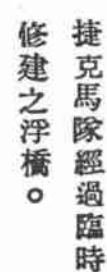 捷克馬隊經過臨時
修建之浮橋。